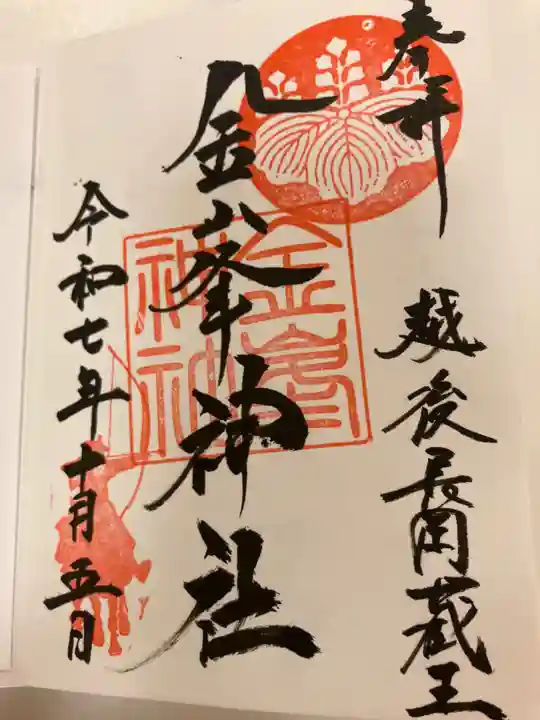 奉拝
越後長岡蔵王
金峯神社
令和七年十月五日
金峯
神社